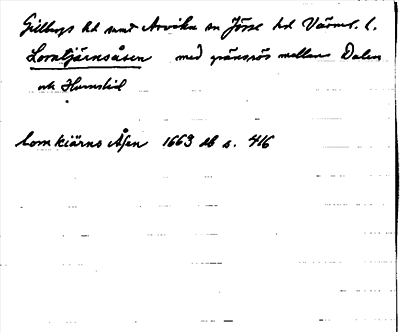 Gillbergs hd samt Arvika sn Jösse hd Värml. l.
Lomtjärnsåsen med gränsrös mellan Dalen
och Humslid
Lomkiärns Åsen 1663 db s. 416